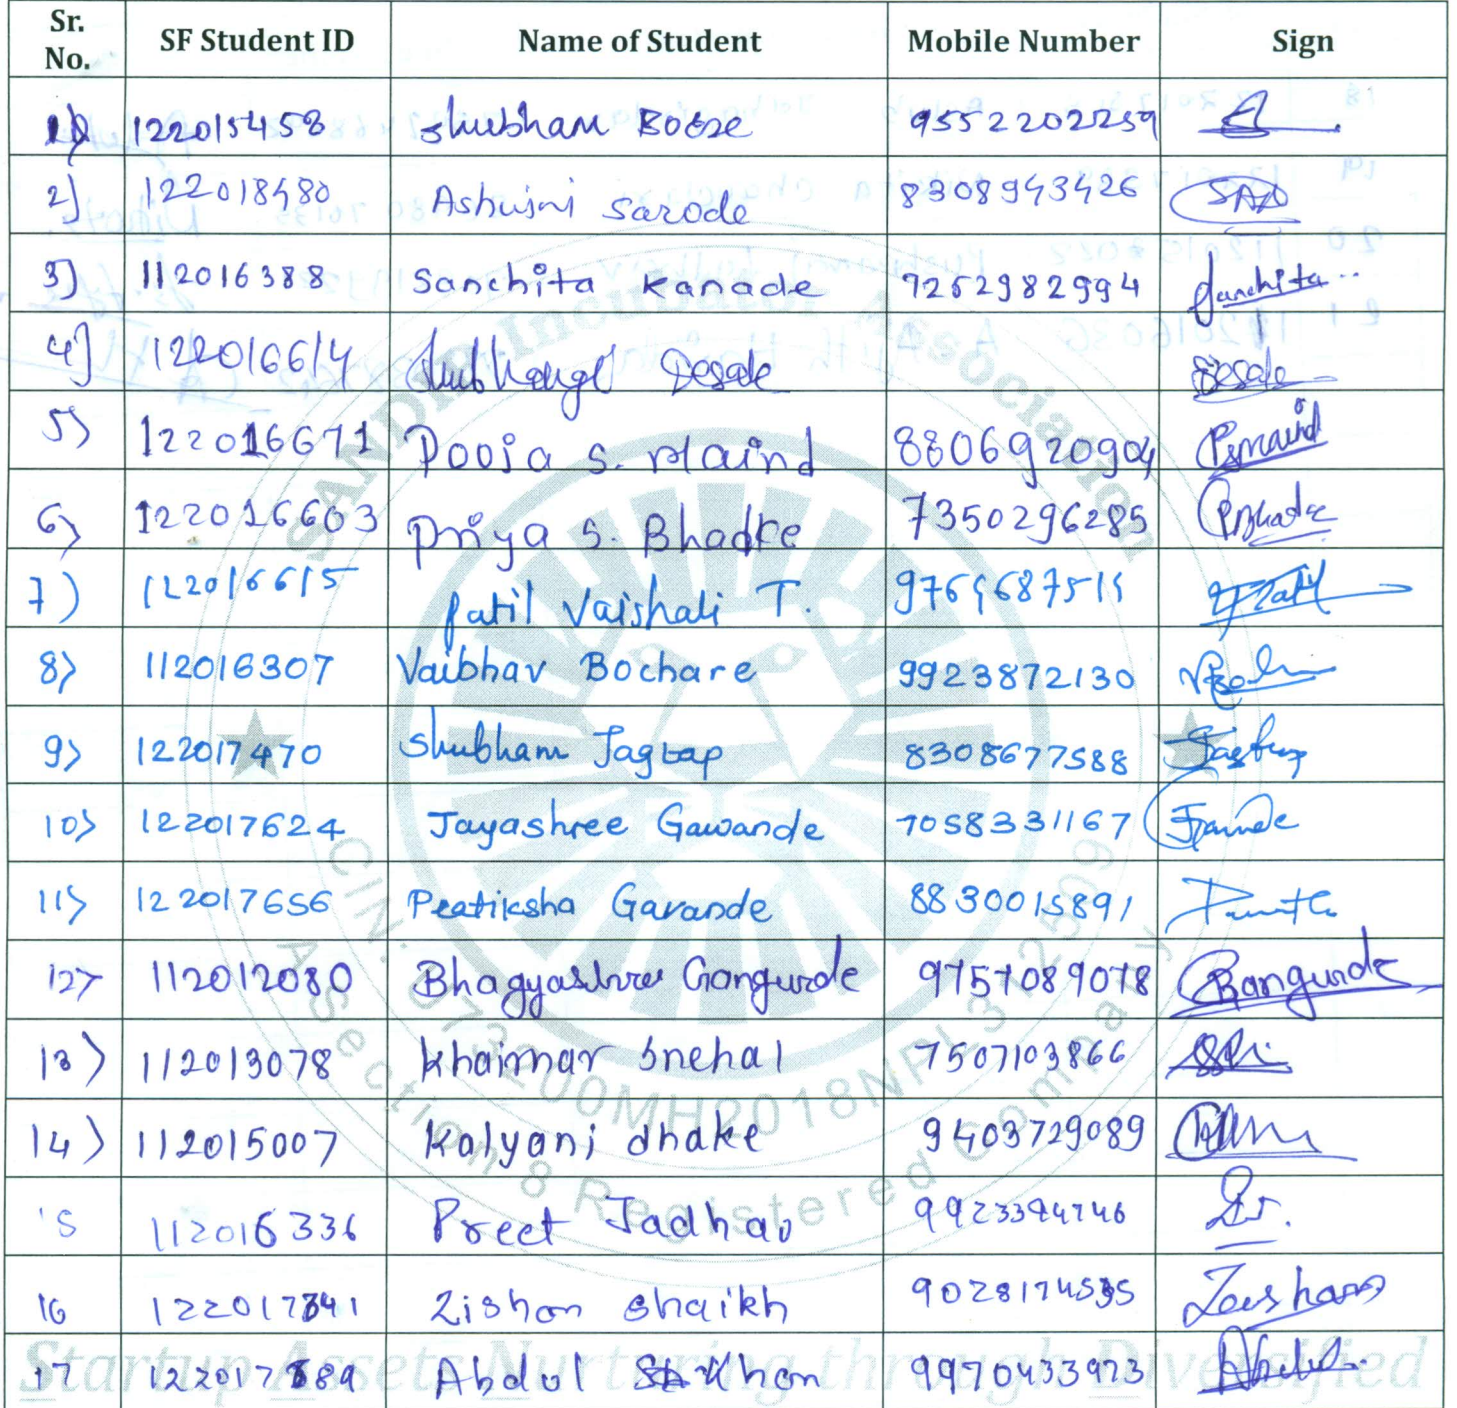 Sr. No. SF Student ID Name of Student Mobile Number Sign
1) 122015458 Shubham Borse 9552202259
2) 122018480 Ashwini Sarode 8308943426
3) 112016388 Sanchita Kanade 9262982994 Sanchita
4) 122016614 Shubhangi Desale Desale
5) 122016671 Pooja S. Maind 8806920904 PSmaind
6) 122016603 Priya S. Bhadke 7350296285
7) 122016615 Patil Vaishali T.
8) 112016307 Vaibhav Bochare 9923872130
9) 122017470 Shubham Jagtap 8308677588 Jagtap
10) 122017624 Jayashree Gawande 7058331167
11) 122017656 Pratiksha Gavande 8830015891
12) 112012080 Bhagyashree Gangurde 9757089078 Bangurde
13) 112013078 Khairnar Snehal 7507103866
14) 112015007 Kalyani dhake 9403729089
15 112016336 Preet Jadhav
16 122017341 Zishan Shaikh 9028174535 Zeeshan
17 Abdul Khan 9970433923
SANDIP Incubator Association
CIN: U73200MH2018NPL312509
A Section 8 Registered Company
Startup Assets Nurturing through Diversified